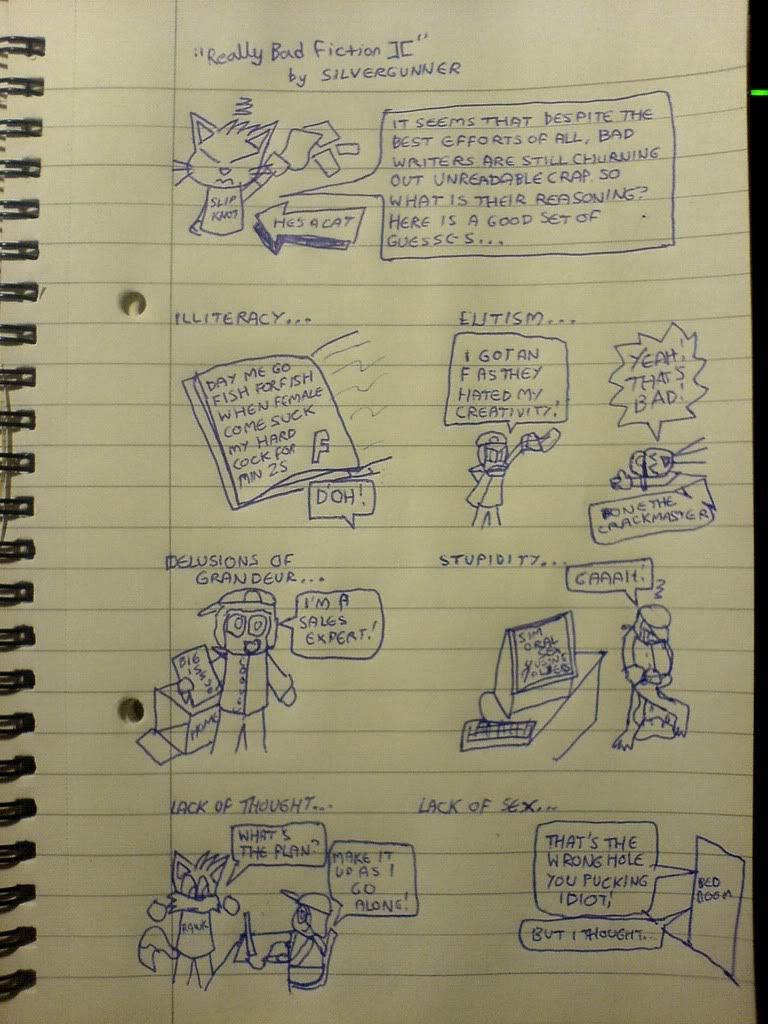 "Really Bad Fiction II"
by SILVERGUNNER
IT SEEMS THAT DESPITE THE
BEST EFFORTS OF ALL, BAD
WRITERS ARE STILL CHURNING
OUT UNREADABLE CRAP. SO
WHAT IS THEIR REASONING?
HERE IS A GOOD SET OF
GUESSES...
SLIP
KNOT
HES A CAT
ILLITERACY...
DAY ME GO
FISH FOR FISH
WHEN FEMALE
COME SUCK
MY HARD
COCK FOR
MIN 25
F
D'OH!
ELITISM...
I GOT AN
F AS THEY
HATED MY
CREATIVITY!
YEAH!
THAT'S
BAD!
THE
CRACKMASTER
DELUSIONS OF
GRANDEUR...
I'M A
SALES
EXPERT!
BIG
HOME
STUPIDITY...
GAAAH!
SIM
ORAL
SEX
LACK OF THOUGHT...
WHAT'S
THE PLAN?
MAKE IT
UP AS I
GO
ALONG!
RAWK
LACK OF SEX...
THAT'S THE
WRONG HOLE
YOU PUCKING
IDIOT!
BUT I THOUGHT...
BED
ROOM